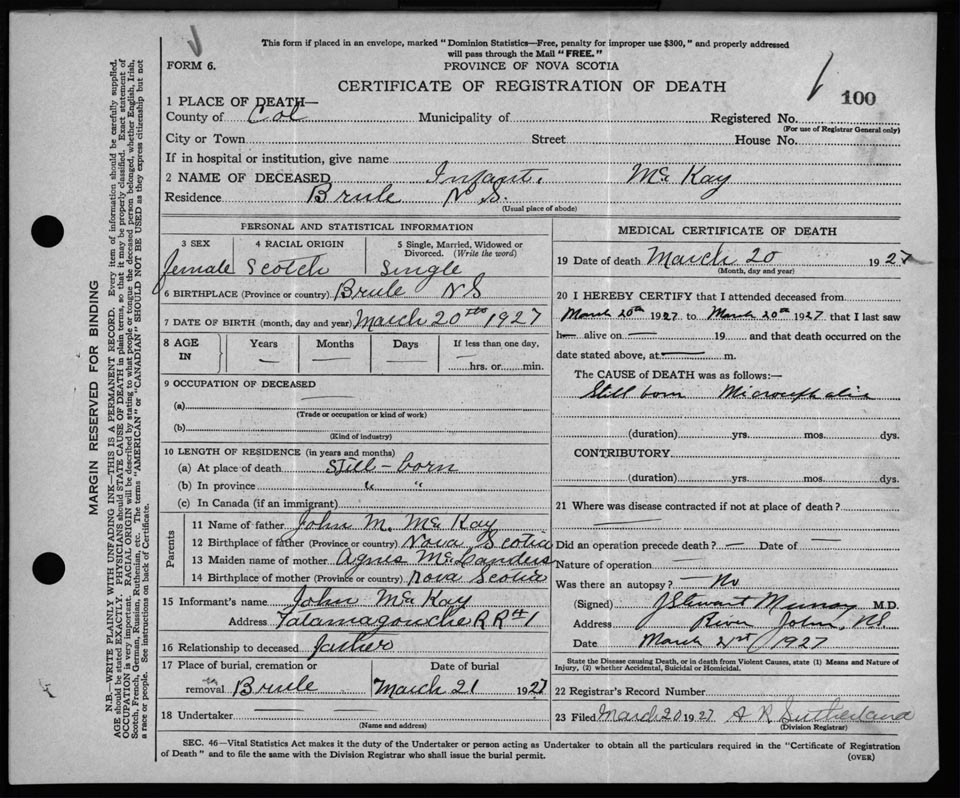 This form if placed in an envelope, marked "Dominion Statistics—Free, penalty for improper use $300," and properly addressed
will pass through the Mail "FREE."
FORM 6.
PROVINCE OF NOVA SCOTIA
CERTIFICATE OF REGISTRATION OF DEATH
100
1 PLACE OF DEATH—
County of Col Municipality of Registered No.
(For use of Registrar General only)
City or Town Street House No.
If in hospital or institution, give name
2 NAME OF DECEASED Infant. McKay
Residence Brule N.S.
(Usual place of abode)
MARGIN RESERVED FOR BINDING
N.B.—WRITE PLAINLY WITH UNFADING INK—THIS IS A PERMANENT RECORD. Every item of information should be carefully supplied.
AGE should be stated EXACTLY. PHYSICIANS should STATE CAUSE OF DEATH in plain terms, so that it may be properly classified. Exact statement of
OCCUPATION is very important. RACIAL ORIGIN will be described by stating to what people or tongue the deceased person belonged, whether English, Irish,
Scotch, French, German, Russian, Ruthenian, etc. The terms "AMERICAN" or "CANADIAN" SHOULD NOT BE USED as they express citizenship but not
a race or people. See instructions on back of Certificate.
PERSONAL AND STATISTICAL INFORMATION
3 SEX 4 RACIAL ORIGIN 5 Single, Married, Widowed or
Divorced. (Write the word)
female Scotch Single
6 BIRTHPLACE (Province or country) Brule N S
7 DATE OF BIRTH (month, day and year) March 20th 1927
8 AGE IN Years Months Days If less than one day,
hrs. or min.
9 OCCUPATION OF DECEASED
(a)
(Trade or occupation or kind of work)
(b)
(Kind of industry)
10 LENGTH OF RESIDENCE (in years and months)
(a) At place of death Still-born
(b) In province " "
(c) In Canada (if an immigrant)
Parents
11 Name of father John M. McKay
12 Birthplace of father (Province or country) Nova Scotia
13 Maiden name of mother Agnes
14 Birthplace of mother (Province or country) Nova Scotia
15 Informant's name John McKay
Address Tatamagouche R R #1
16 Relationship to deceased father
17 Place of burial, cremation or Date of burial
removal Brule March 21 1927
18 Undertaker
(Name and address)
MEDICAL CERTIFICATE OF DEATH
19 Date of death March 20 1927
(Month, day and year)
20 I HEREBY CERTIFY that I attended deceased from
March 20th 1927 to March 20th 1927 that I last saw
h— alive on — 19 and that death occurred on the
date stated above, at — m.
The CAUSE of DEATH was as follows:—
Still born Microcephalis
(duration) yrs. mos. dys.
CONTRIBUTORY
(duration) yrs. mos. dys.
21 Where was disease contracted if not at place of death?
Did an operation precede death? — Date of —
Nature of operation —
Was there an autopsy? — No
(Signed) J Stewart Murray M.D.
Address River John, N.S.
Date March 21st 1927
State the Disease causing Death, or in death from Violent Causes, state (1) Means and Nature of
Injury, (2) whether Accidental, Suicidal or Homicidal.
22 Registrar's Record Number
23 Filed March 20 1927 A R Sutherland
(Division Registrar)
SEC. 46—Vital Statistics Act makes it the duty of the Undertaker or person acting as Undertaker to obtain all the particulars required in the "Certificate of Registration
of Death" and to file the same with the Division Registrar who shall issue the burial permit.
(OVER)